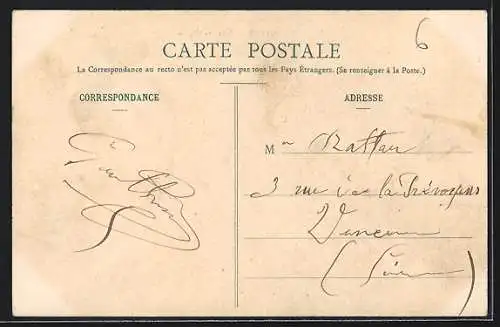 6
CARTE POSTALE
La Correspondance au recto n'est pas acceptée par tous les Pays Étrangers. (Se renseigner à la Poste.)
CORRESPONDANCE
ADRESSE
M
3 rue de la Prévoyance
Vincennes
(Seine)